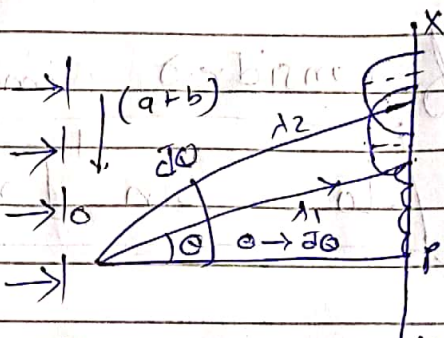 X
(a+b)
λ2
dθ
o
λ1
θ θ → dθ
P